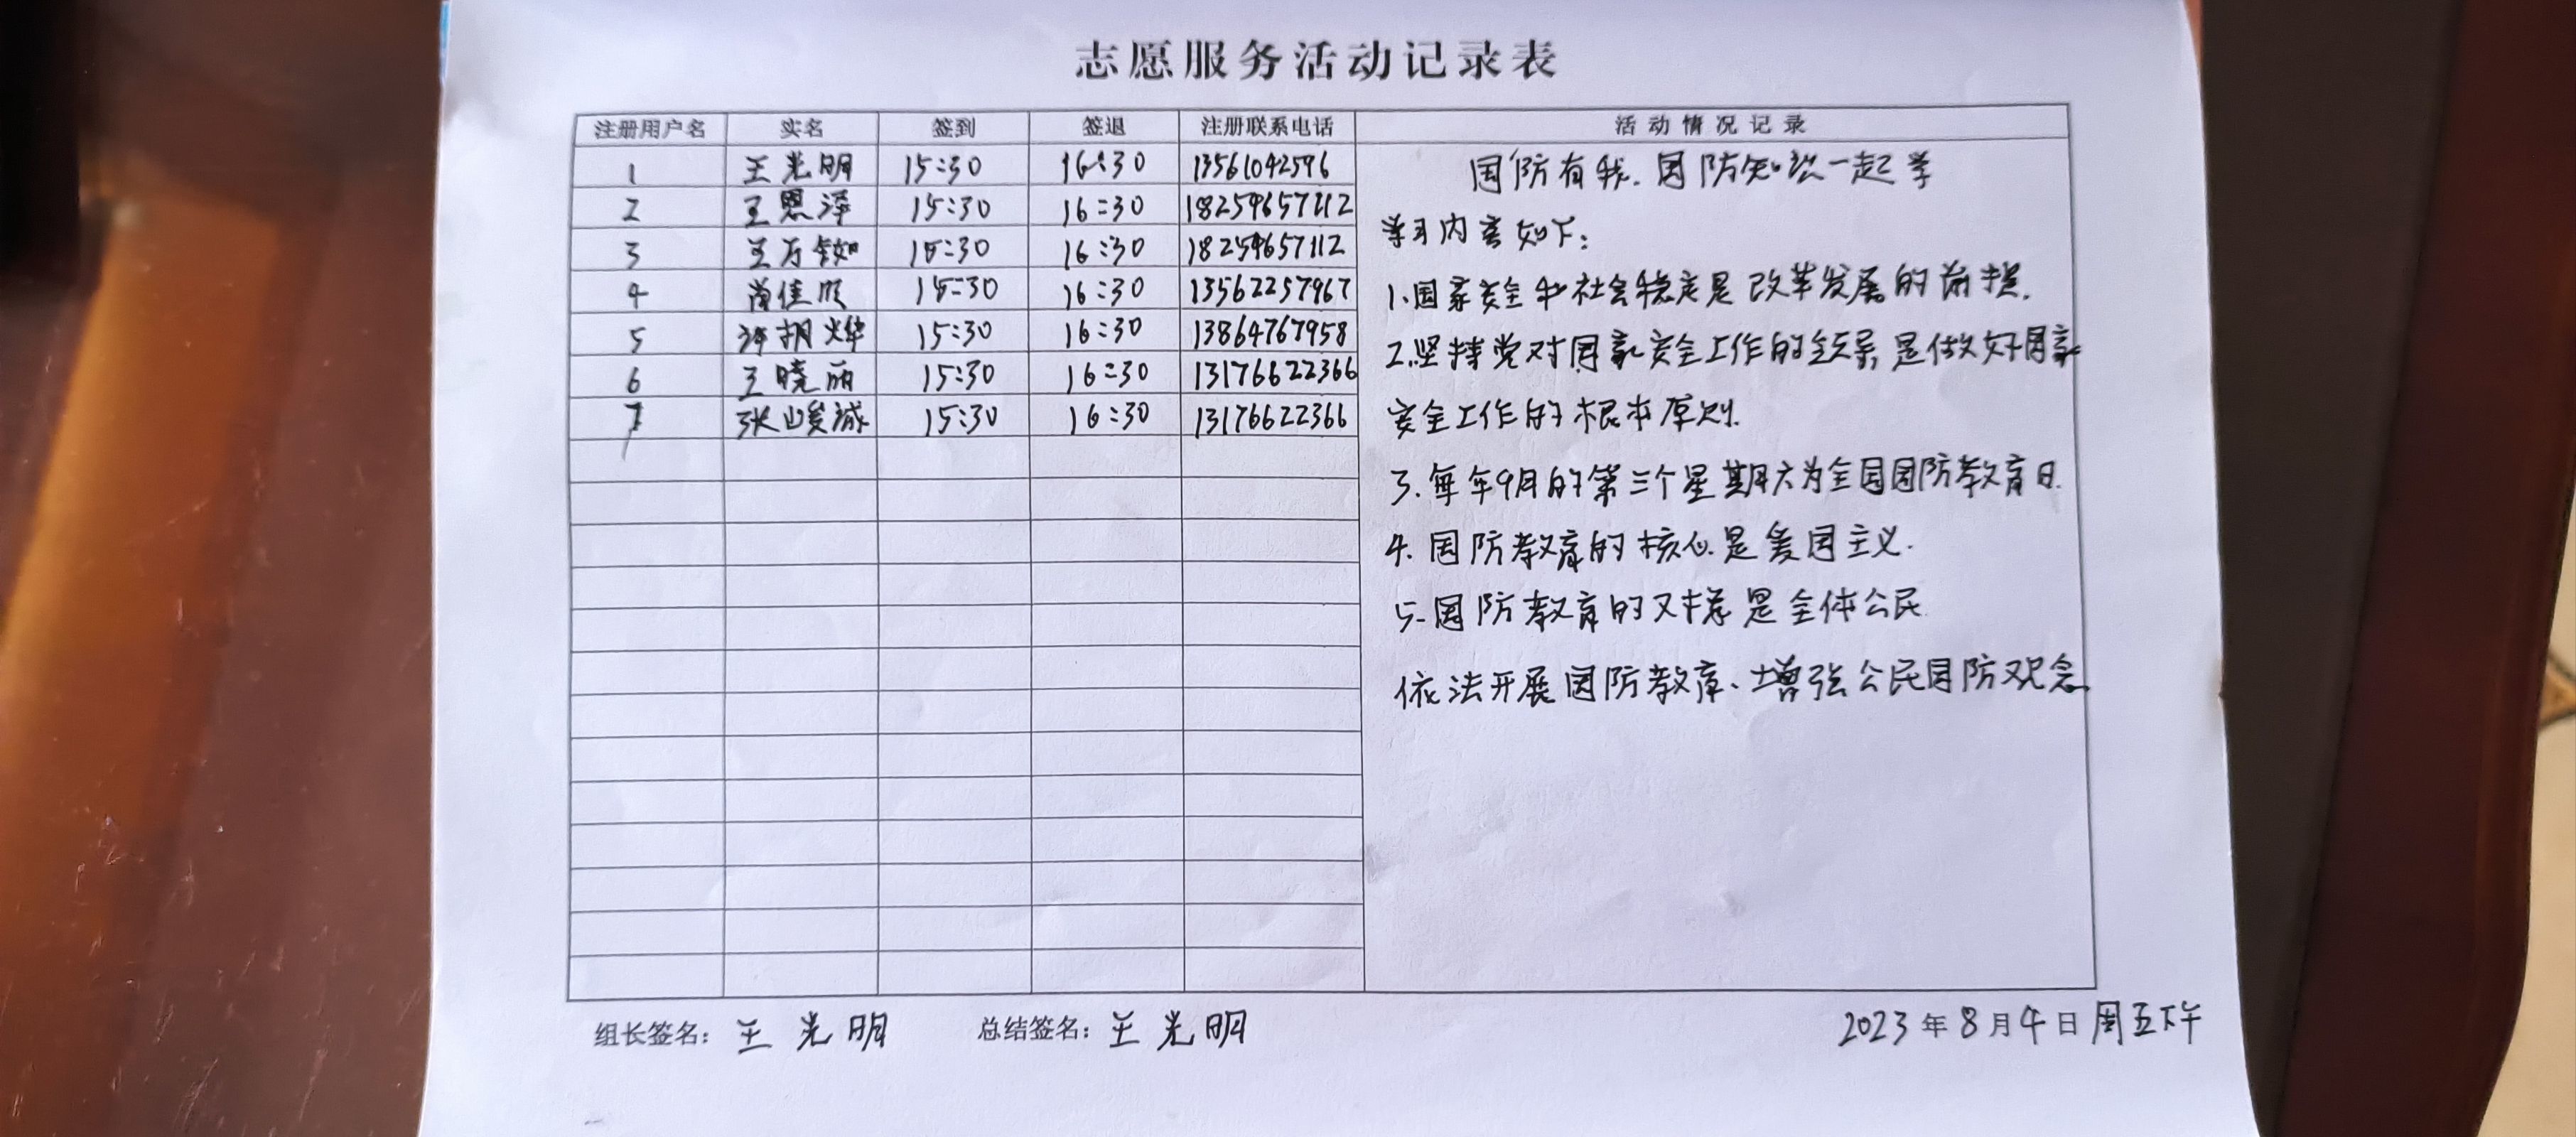 志愿服务活动记录表
注册用户名 实名 签到 签退 注册联系电话 活动情况记录
1 王光明 15:30 16:30 13561042596
2 王恩泽 15:30 16:30 18259657112
3 王万 15:30 16:30 18259657112
4 佳 15:30 16:30 13562257967
5 15:30 16:30 13864767958
6 王晓丽 15:30 16:30 13176622366
7 张峻诚 15:30 16:30 13176622366
国防有我.国防知识一起学
学习内容如下:
1.国家安全和社会稳定是改革发展的前提.
2.坚持党对国家安全工作的领导,是做好国家
安全工作的根本原则.
3.每年9月的第三个星期六为全国国防教育日.
4.国防教育的核心是爱国主义.
5.国防教育的对象是全体公民.
依法开展国防教育、增强公民国防观念
组长签名: 王光明 总结签名: 王光明 2023年8月4日周五下午